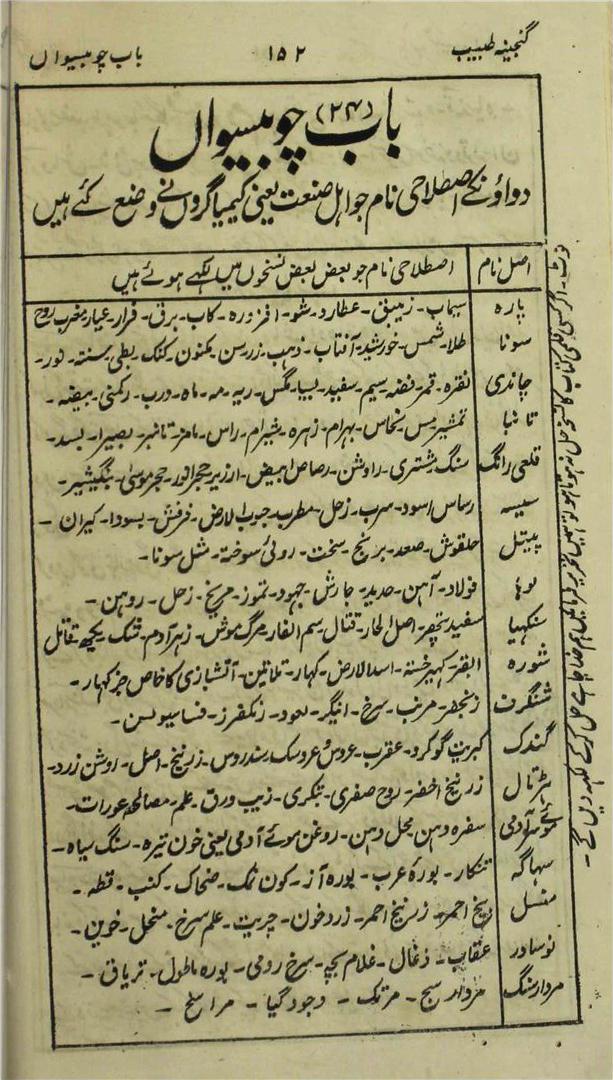 گنجینہ طبیب ۱۵۲ باب چوبیسواں
باب چوبیسواں (۲۴)
دواؤنکے اصطلاحی نام جو اہل صنعت یعنی کیمیاگروں نے وضع کئے ہیں
اصل نام اصطلاحی نام جو بعض بعض نسخوں میں لکھے ہوئے ہیں
پارہ سیماب۔ زیبق۔ عطارد۔ شو۔ افزورہ۔ کاب۔ برق۔ فرار۔ عیار۔ مغرب روح
سونا طلا۔ شمس۔ خورشید۔ آفتاب۔ ذہب۔ زر۔ سن۔ مکنون۔ کنک۔ بطی۔ بسنتہ۔ نور۔
چاندی نقرہ۔ قمر۔ فضہ۔ سیم۔ سفید۔ سیبا۔ مگس۔ ریہ۔ مہ۔ ماہ۔ درب۔ رکمنی۔ بیضہ۔
تانبا مس۔ نحاس۔ بہرام۔ زہرہ۔ شیرام۔ راس۔ نامبر۔ بصیرا۔ بسد۔
قلعی رانگ سنگ۔ مشتری۔ راوشن۔ رصاص ابیض۔ ارزیز۔ حجر انور۔ حجر موسیٰ۔ بنگیشیر۔
سیسہ رساس اسود۔ سرب۔ زحل۔ مطرب۔ جوب الارض۔ فرفش۔ بسودا۔ کیران۔
پیتل حلقوش۔ صعد۔ برنج۔ سخت۔ روئی سوختہ۔ مثل سونا۔
لوہا فولاد۔ آہن۔ حدید۔ جارش۔ جہود۔ تموز۔ مریخ۔ زحل۔ روہن۔
سنکھیا سفید پتھر۔ اصل الحار۔ قتال۔ سم الفار۔ مرگ موش۔ زہر آدم۔ تنک۔ یکچھ۔ قاتل
شورہ البقر۔ کہیر خستہ۔ اسد الارض۔ کہار۔ تلاتین۔ آتشبازی کا خاص جز کہار۔
شنگرف زنجفر۔ مرتب۔ سرخ۔ انیگر۔ لعود۔ زنکفرز۔
گندک کبریت۔ گوگرد۔ عقرب۔ عروس۔ عروسک۔ سندروس۔ زرنیخ۔ اصل۔ روشن زرد۔
ہڑتال زرنیخ اخضر۔ روح صفری۔ تنکری۔ زیب ورق۔ علم۔ مصالحہ عورات۔
موئے آدمی سفرہ وہن۔ مجل وہن۔ روغن موئے آدمی یعنی خون تیرہ۔ سنگ سیاہ۔
سہاگہ تنکار۔ بورہ عرب۔ بورہ آز۔ کون نمک۔ ضحاک۔ کنب۔ قطہ۔
منسل ریخ احمر۔ زرنیخ احمر۔ زرد خون۔ چریت۔ علم سرخ۔ منحل۔ خوین۔
نوسادر عقاب۔ ذغال۔ غلام بچہ۔ سرخ رومی۔ بورہ ماطول۔ تریاق۔
مردار سنگ مردار سنج۔ مرتک۔ وجود گیا۔ مراسلخ۔